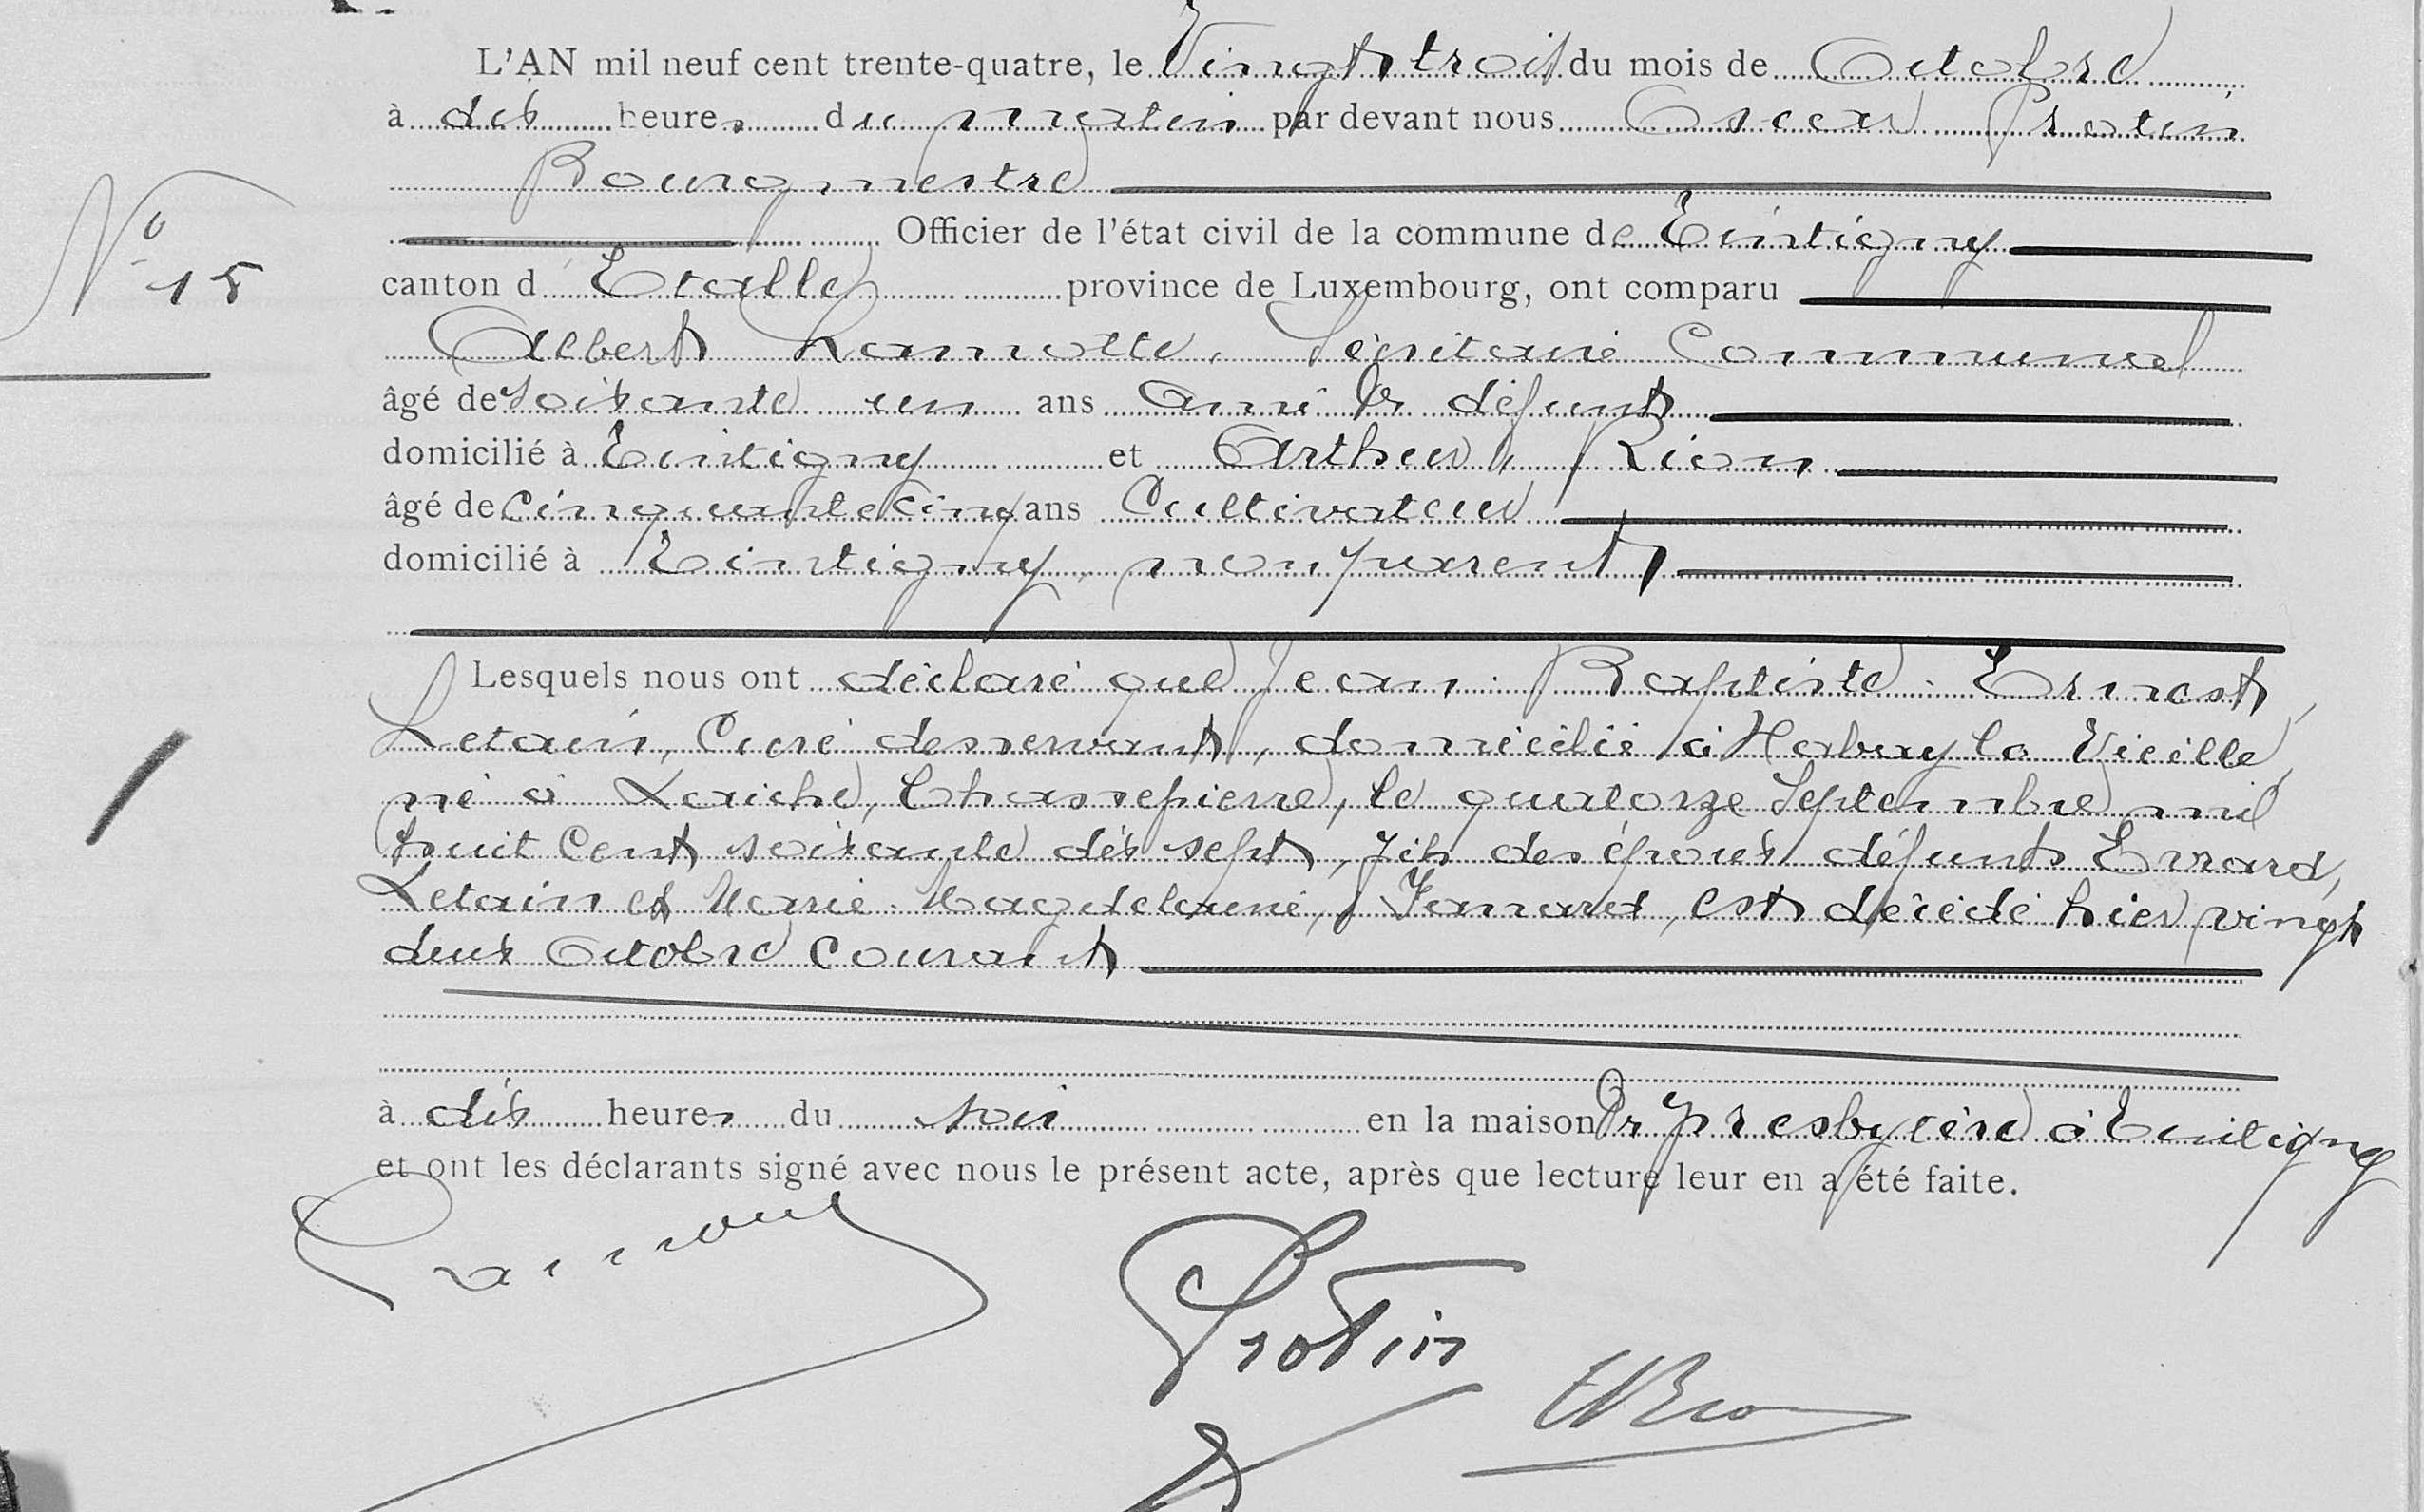 L'AN mil neuf cent trente-quatre, le Vingt trois du mois de Octobre
à dix heures du matin par devant nous Oscar Protin
Bourgmestre
N° 15
Officier de l'état civil de la commune de Tintigny
canton d' Etalle province de Luxembourg, ont comparu
Albert Lamotte, Secrétaire Communal
âgé de soixante un ans ami du défunt
domicilié à Tintigny et Arthur Rion
âgé de Cinquante cinq ans Cultivateur
domicilié à Tintigny, non parent
Lesquels nous ont déclaré que Jean-Baptiste-Ernest
Letain, Curé desservant, domicilié à Habay la Vieille,
né à Laiche, Chassepierre, le quatorze Septembre mil
huit Cent soixante dix sept, fils des époux défunts Evrard,
Letain et Marie-Magdelaine, est décédé hier, vingt
deux Octobre courant
à dix heures du soir en la maison Du presbytère à Tintigny
et ont les déclarants signé avec nous le présent acte, après que lecture leur en a été faite.
Protin